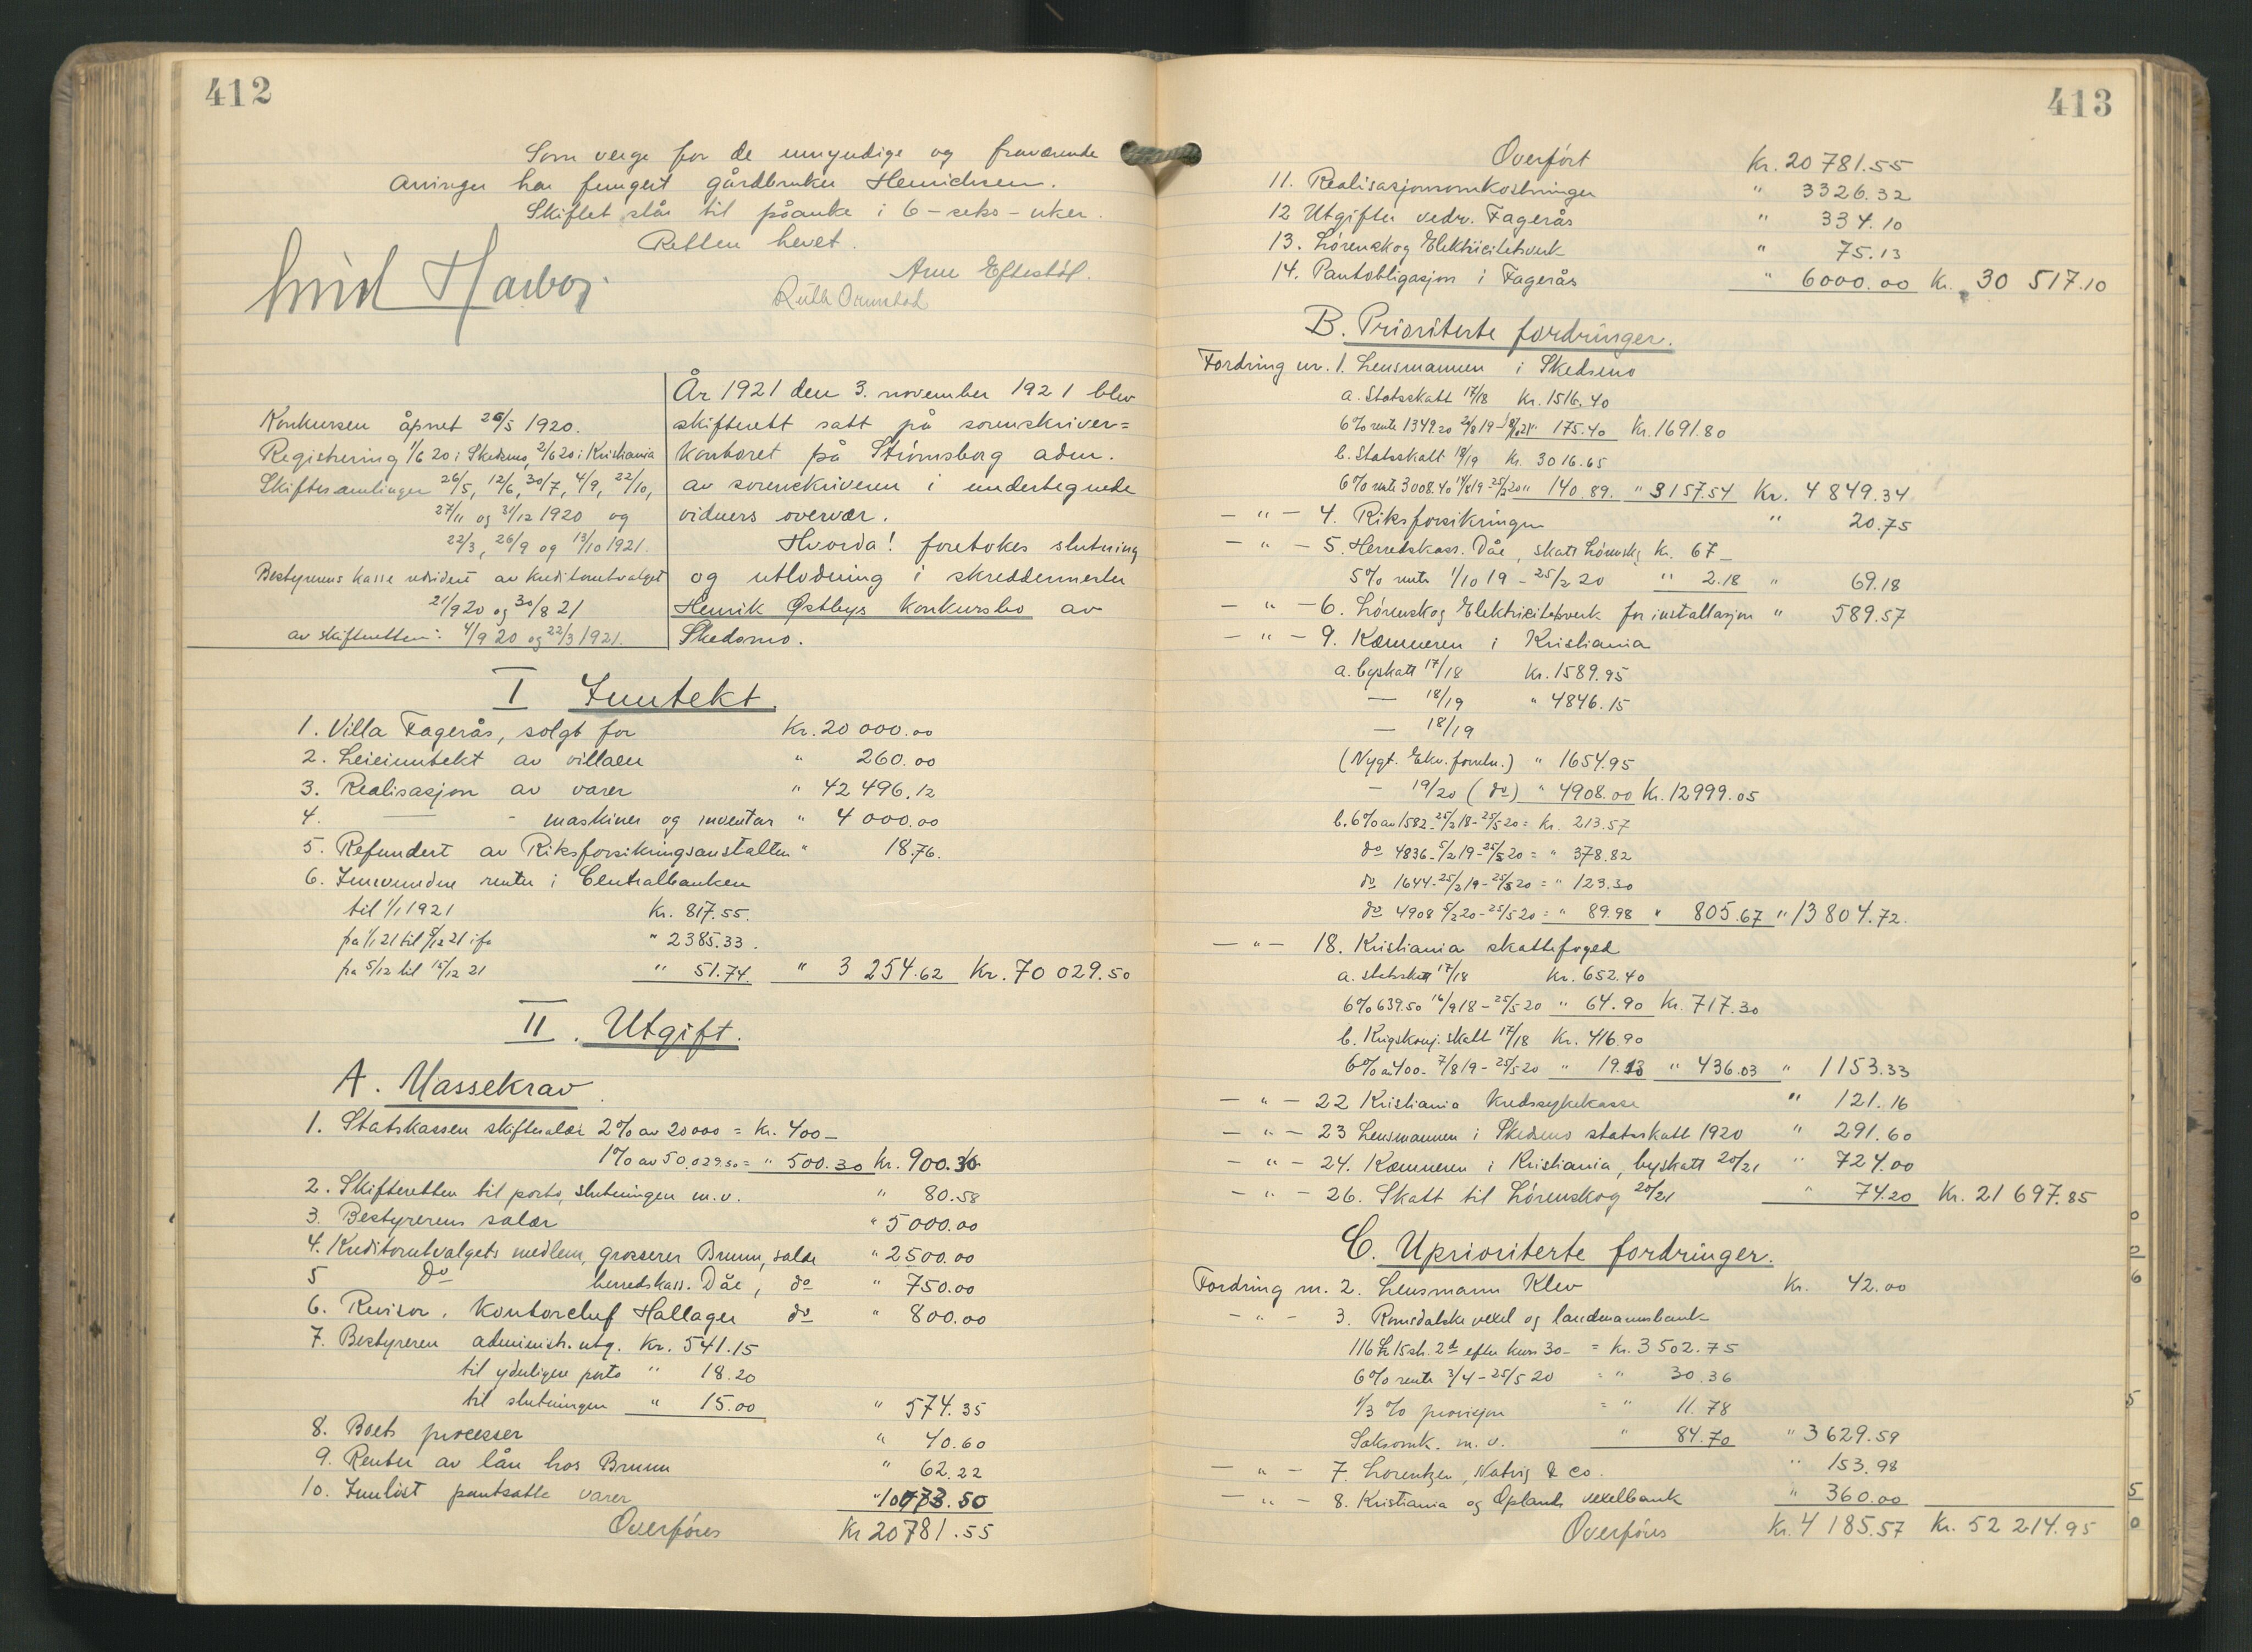 412
Som verge for de umyndige og fraværende
arvinger har fungert gårdbruker Henrichsen.
Skiftet står til påanke i 6 - seks - uker.
Retten hevet.
Arne Eftestøl.
Ruth Ormestad
Konkursen åpnet 26/5 1920.
Registrering 1/6 20 i Skedsmo, 2/6 20 i Kristiania
Skiftesamlinger 26/5, 12/6, 30/7, 4/9, 22/10,
27/11 og 31/12 1920 og
22/3, 26/9 og 13/10 1921.
Bestyrerens kasse revidert av kreditorutvalget
21/9 20 og 30/8 21
av skifteretten: 4/9 20 og 22/3 1921.
År 1921 den 3. november 1921 blev
skifterett satt på sorenskriver=
kontoret på Strömsborg adm.
av sorenskriveren i undertegnede
vidners overvær.
Hvorda! foretokes slutning
og utlodning i skreddermester
Henrik Østbys konkursbo av
Skedsmo.
I Inntekt.
1. Villa Fagerås, solgt for Kr. 20 000.00
2. Leieinntekt av villaen " 260.00
3. Realisasjon av varer " 42 496.12
4. — - maskiner og inventar " 4 000.00
5. Refundert av Riksforsikringsanstalten " 18.76.
6. Innvundne renter i Centralbanken
til 1/1 1921 Kr. 817.55.
fra 1/1 21 til 5/12 21 " 2385.33.
fra 5/12 til 15/12 21 " 51.74. " 3 254.62 Kr. 70 029.50
II. Utgift.
A. Massekrav.
1. Statskassen skiftesalær 2% av 20000 = Kr. 400 -
1% av 50.029.50 = " 500.30 Kr. 900.30
2. Skifteretten til porto, slutningen m.v. " 80.58
3. Bestyrerens salær " 5 000.00
4. Kreditorutvalgets medlem, grosserer Brunn, salær " 2500.00
5 do herredskass. Dåe, do " 750.00
6. Revisor, Kontorchef Hallager do " 800.00
7. Bestyreren administr. utg. Kr. 541.15
til yderligere porto " 18.20
til slutningen " 15.00 " 574.35
8. Boets processer " 40.60
9. Renter av lån hos Brunn " 62.22
10. Innløst pantsatte varer " 10073.50
Overføres Kr 20781.55
413
Overført Kr. 20 781.55
11. Realisasjonsomkostninger " 3326.32
12 Utgifter vedr. Fagerås " 334.10
13. Lørenskog Elektricitetsverk " 75.13
14. Pantobligasjon i Fagerås " 6000.00 Kr. 30 517.10
B. Prioriterte fordringer.
Fordring nr. 1. Lensmannen i Skedsmo
a. Statsskatt 17/18 Kr. 1516.40
6% rente 1349.20 175.40 Kr. 1691.80
b. Statsskatt 18/19 Kr. 3016.65
6% rente 3008.40 " 140.89. " 3157.54 Kr. 4 849.34
- " - 4. Riksforsikringen " 20.75
- " - 5. Herredskass. Dåe, skatt Lørenskg Kr. 67 -
5% rente 1/10 19 - 25/2 20 " 2.18 " 69.18
- " - 6. Lørenskog Elektricitetsverk for installasjon " 589.57
- " - 9. Kæmneren i Kristiania
a. byskatt 17/18 Kr. 1589.95
— 18/19 " 4846.15
— 18/19
(Nygt. Ekv. forretn.) " 1654.95
— 19/20 (do) " 4908.00 Kr. 12999.05
b. 6% av 1582 - 25/2 18 - 25/5 20 = Kr. 213.57
do 4836 - 5/2 19 - 25/5 20 = " 378.82
do 1644 - 25/2 19 - 25/5 20 = " 123.30
do 4908 5/2 20 - 25/5 20 = " 89.98 " 805.67 " 13 804.72.
- " - 18. Kristiania skattefoged
a. statsskatt 17/18 Kr. 652.40
6% 639.50 16/9 18 - 25/5 20 " 64.90 Kr. 717.30
b. Krigskonj. skatt 17/18 Kr. 416.90
6% av 400 - 7/8 19 - 25/5 20 " 19.13 " 436.03 " 1153.33
- " - 22 Kristiania Kredssykekasse " 121.16
- " - 23 Lensmannen i Skedsmo statsskatt 1920 " 291.60
- " - 24. Kæmneren i Kristiania, byskatt 20/21 " 724.00
- " - 26. Skatt til Lørenskog 20/21 " 74.20 Kr. 21 697.85
C. Uprioriterte fordringer.
Fordring nr. 2. Lensmann Klev Kr. 42.00
- " - 3. Romsdalske vexel og landmannsbank
116 £ 15 sh. 2 d efter kurs 30 - = Kr. 3502.75
6% rente 3/4 - 25/5 20 = " 30.36
1/3 % provisjon = " 11.78
Saksomk. m. v. " 84.70 " 3629.59
- " - 7. Lorentzen, Natvig & Co. " 153.98
- " - 8. Kristiania og Oplands vexelbank " 360.00
Overføres Kr. 4 185.57 Kr. 52 214.95